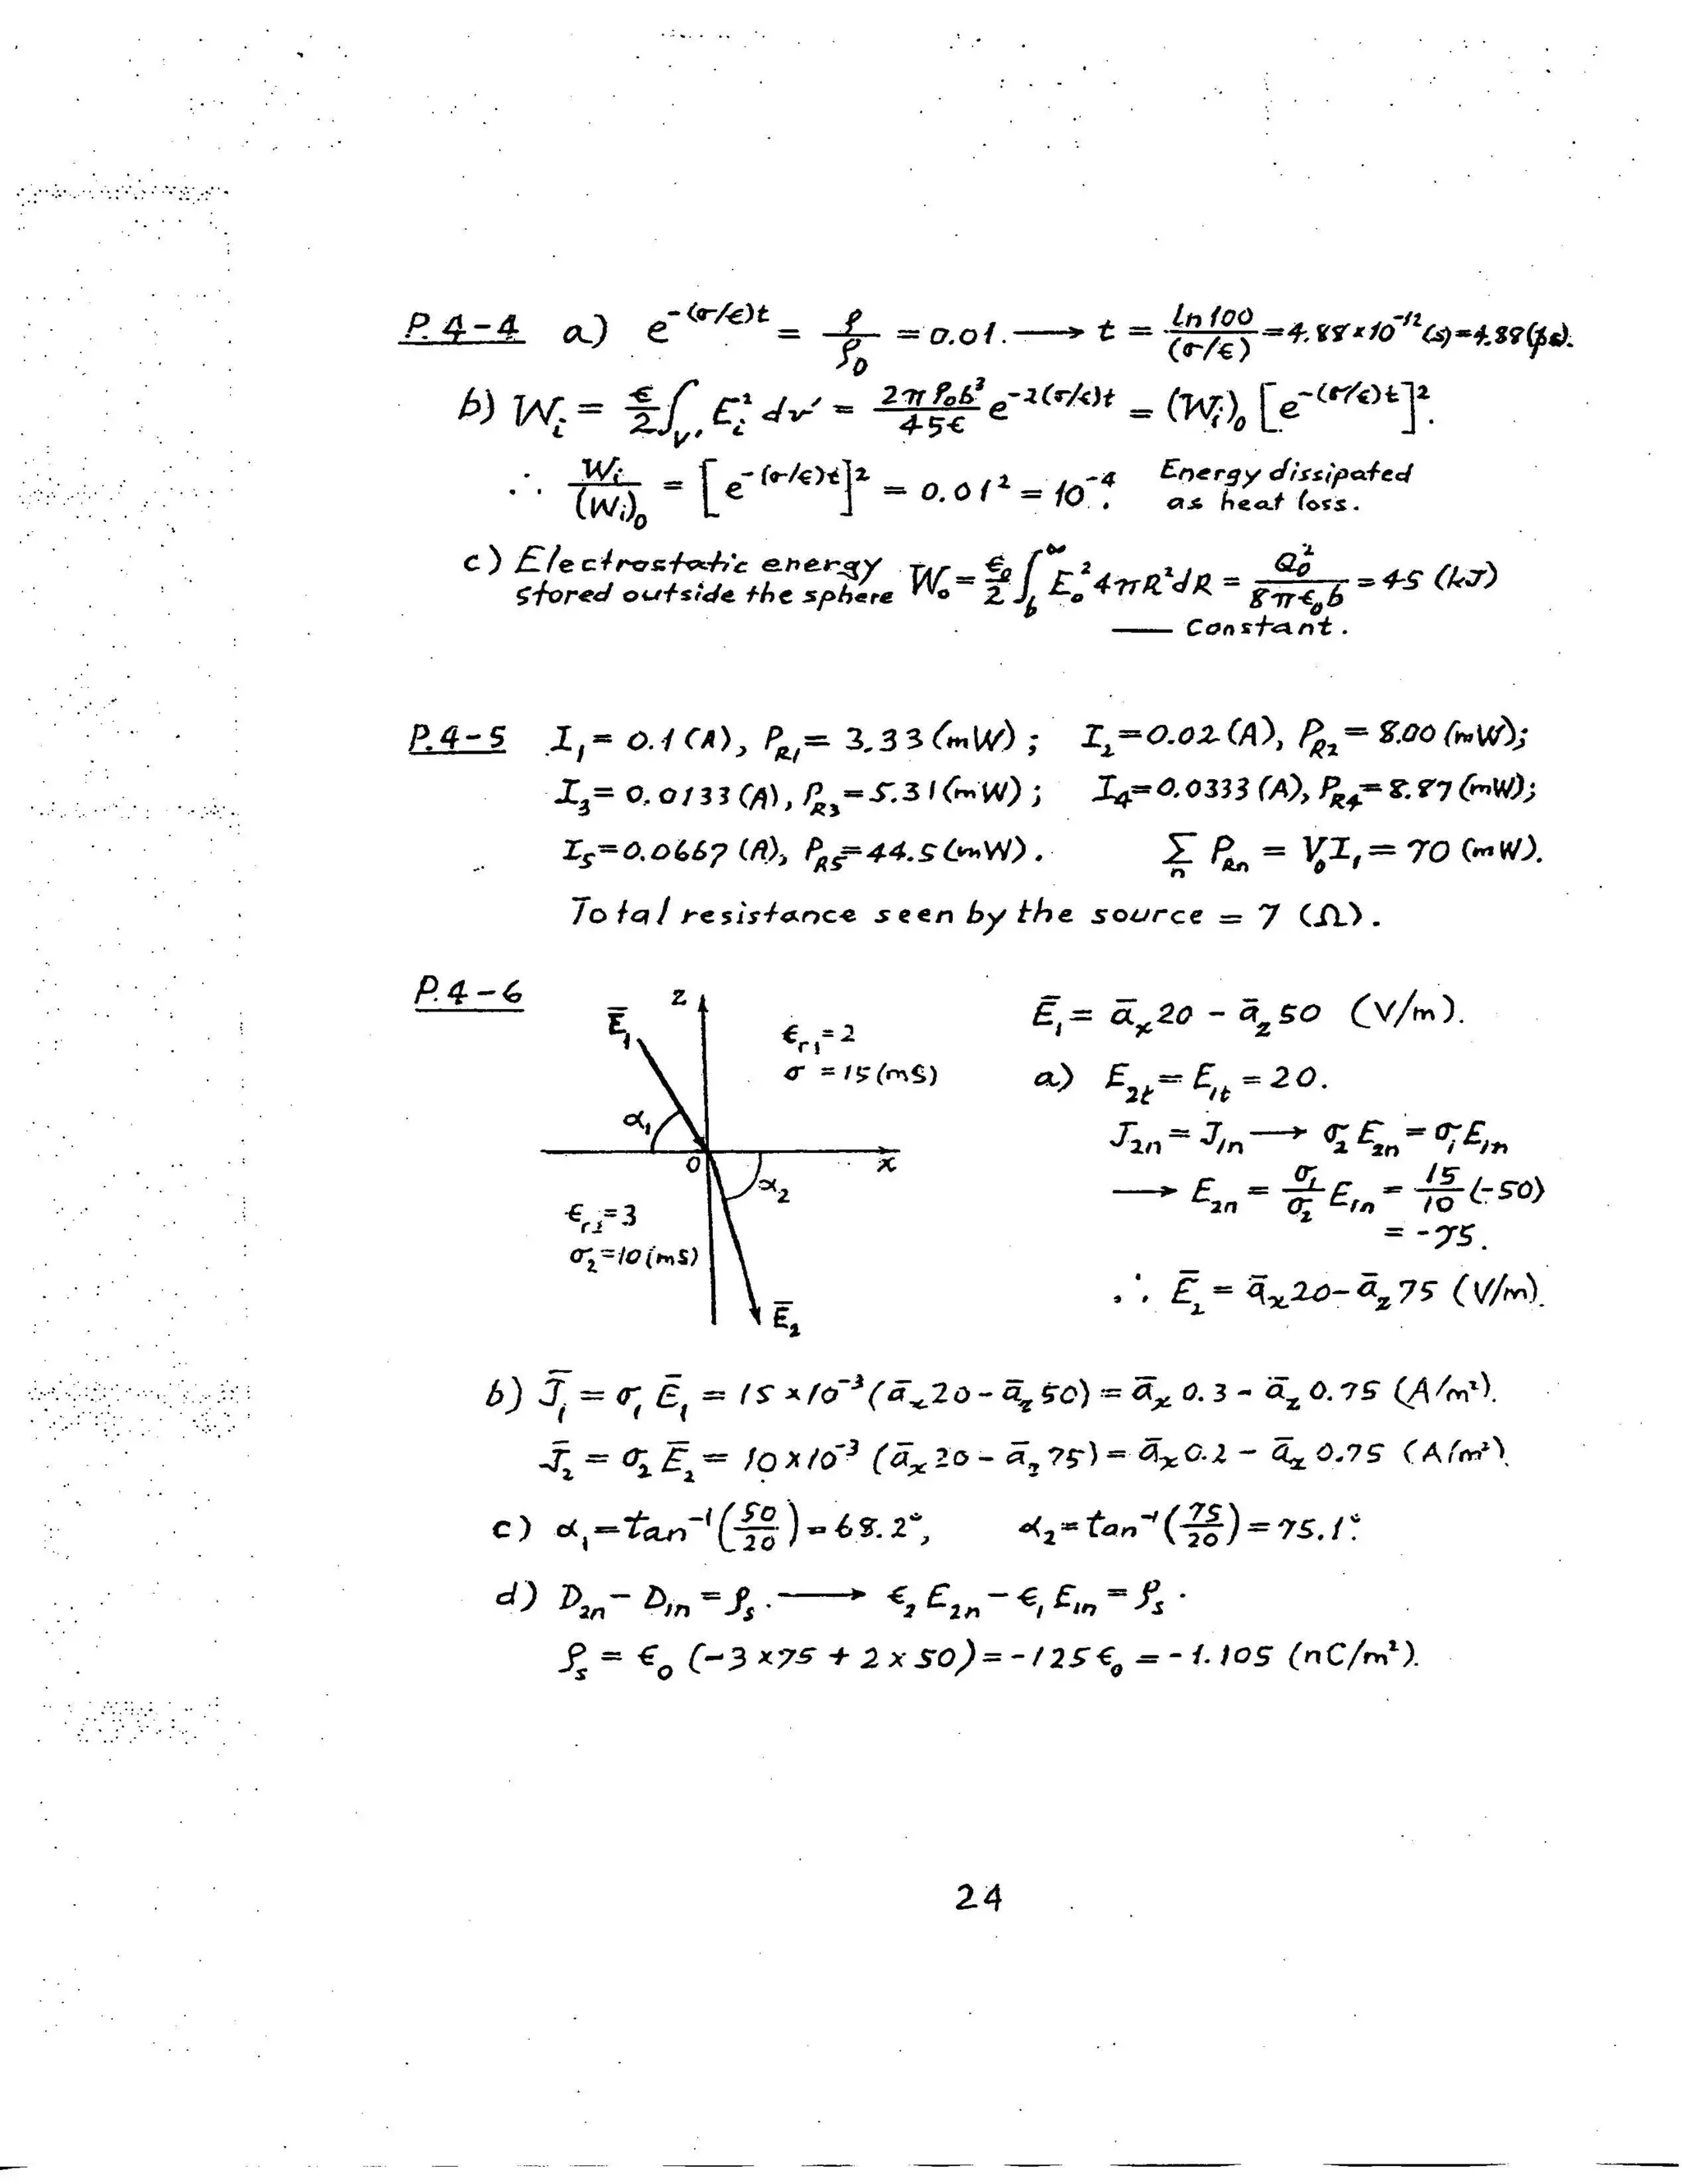 P.4-4 a) e^{-(σ/ϵ)t} = ρ/ρ₀ = 0.01. ⟶ t = ln100/(σ/ϵ) = 4.88×10⁻¹²(s) = 4.88(ps).
b) W_i = ϵ/2 ∫_{V'} E_i² dv' = 2πρ₀b³/45ϵ e^{-2(σ/ϵ)t} = (W_i)₀ [e^{-(σ/ϵ)t}]².
∴ W_i/(W_i)₀ = [e^{-(σ/ϵ)t}]² = 0.01² = 10⁻⁴. Energy dissipated
as heat loss.
c) Electrostatic energy
stored outside the sphere W₀ = ϵ₀/2 ∫_b^∞ E₀² 4πR² dR = Q₀²/8πϵ₀b = 45 (kJ)
— Constant.
P.4-5 I₁ = 0.1 (A), P_{R1} = 3.33 (mW); I₂ = 0.02 (A), P_{R2} = 8.00 (mW);
I₃ = 0.0133 (A), P_{R3} = 5.31 (mW); I₄ = 0.0333 (A), P_{R4} = 8.87 (mW);
I₅ = 0.0667 (A), P_{R5} = 44.5 (mW). Σ_n P_{Rn} = V₀I₁ = 70 (mW).
Total resistance seen by the source = 7 (Ω).
P.4-6
Ē₁
z
ϵ_{r1} = 2
σ = 15 (mS)
α₁
O
x
α₂
ϵ_{r2} = 3
σ₂ = 10 (mS)
Ē₂
Ē₁ = ā_x 20 - ā_z 50 (V/m).
a) E_{2t} = E_{1t} = 20.
J_{2n} = J_{1n} ⟶ σ₂E_{2n} = σ₁E_{1n}
⟶ E_{2n} = σ₁/σ₂ E_{1n} = 15/10 (-50)
= -75.
∴ Ē₂ = ā_x 20 - ā_z 75 (V/m).
b) J̄₁ = σ₁Ē₁ = 15×10⁻³ (ā_x 20 - ā_z 50) = ā_x 0.3 - ā_z 0.75 (A/m²).
J̄₂ = σ₂Ē₂ = 10×10⁻³ (ā_x 20 - ā_z 75) = ā_x 0.2 - ā_z 0.75 (A/m²).
c) α₁ = tan⁻¹(50/20) = 68.2°, α₂ = tan⁻¹(75/20) = 75.1°.
d) D_{2n} - D_{1n} = ρ_s. ⟶ ϵ₂E_{2n} - ϵ₁E_{1n} = ρ_s.
ρ_s = ϵ₀ (-3×75 + 2×50) = -125ϵ₀ = -1.105 (nC/m²).
24